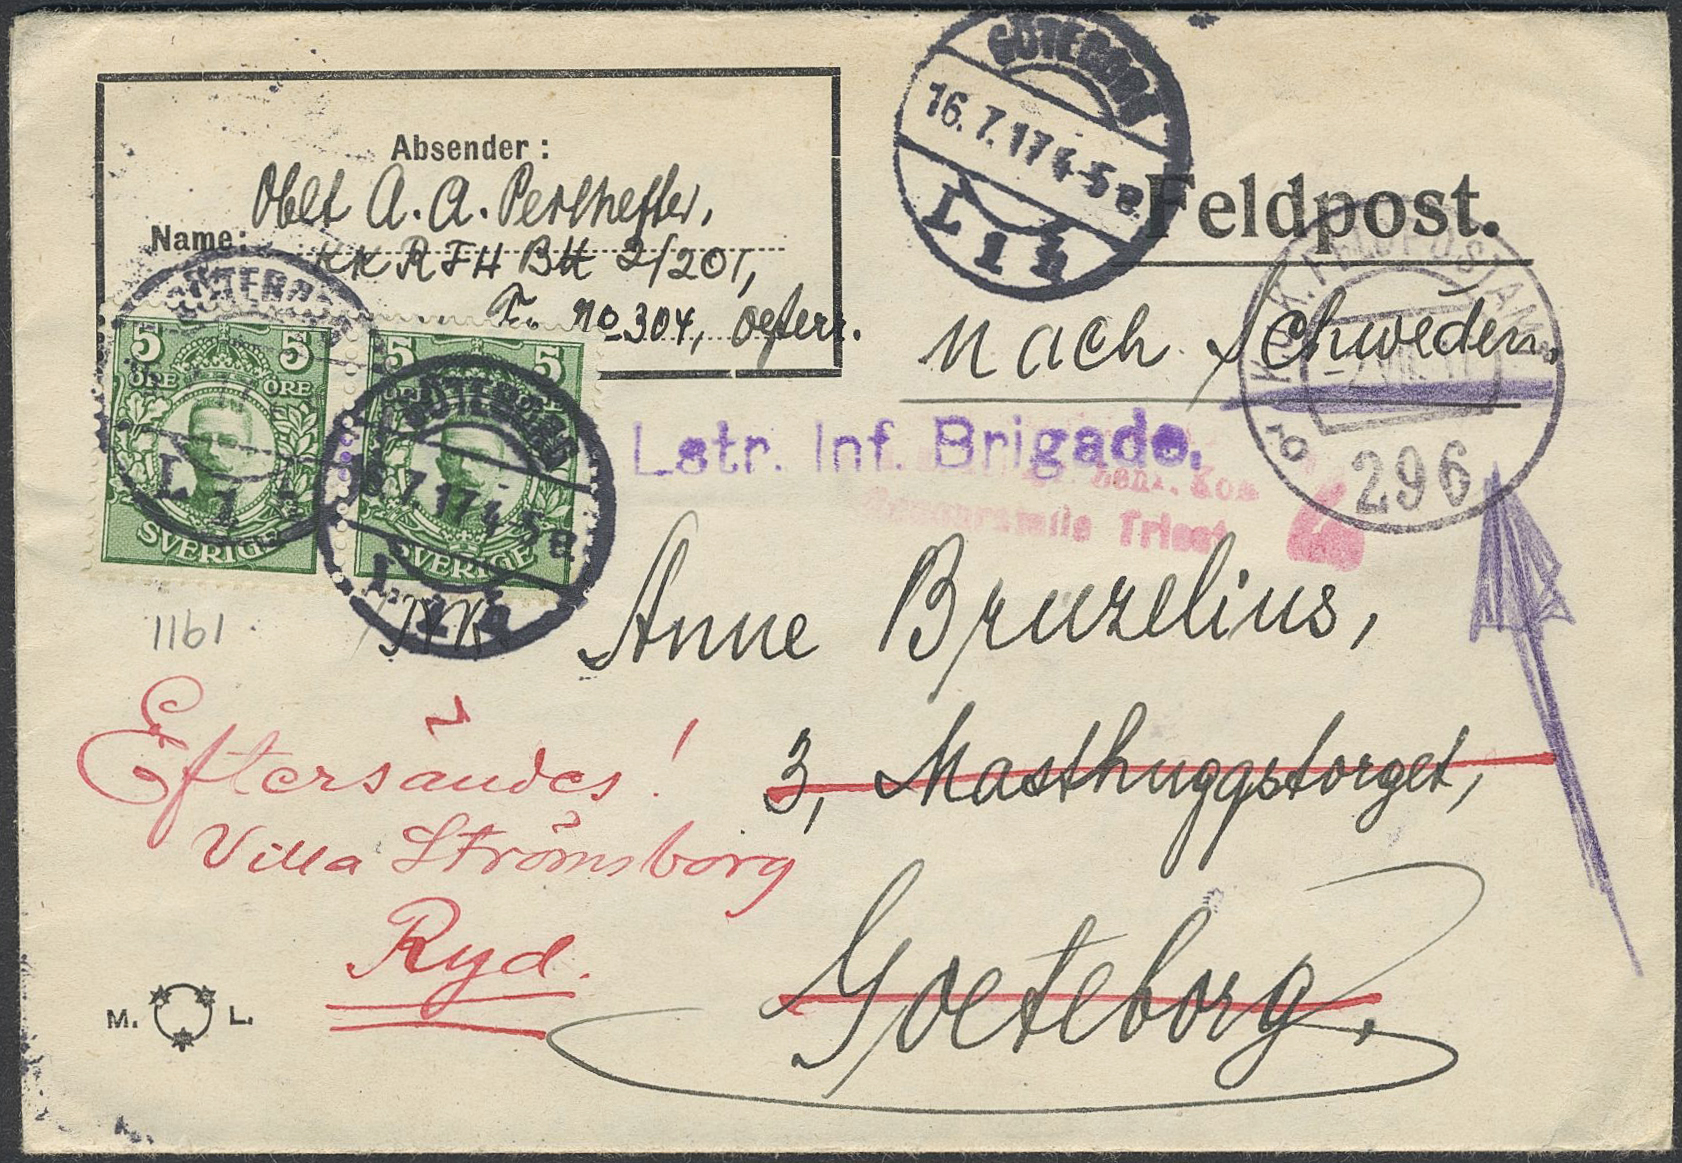 Absender:
Oblt A. A. Perlhefter,
Name:
KK RFH Btt 2/201,
F. No 304, Oesterr.
Feldpost.
nach Schweden.
GÖTEBORG
16.7.17 4-5 e
L 1 h
K.u.K. FELDPOSTAMT
296
GÖTEBORG
L 1
GÖTEBORG
16.7.17 4-5 e
5 5
ÖRE ÖRE
SVERIGE
5 5
SVERIGE
Lstr. Inf. Brigade.
Zensurstelle Triest
1161
Anne Bruzelius,
3, Masthuggstorget,
Goeteborg.
Eftersändes!
Villa Strömsborg
Ryd.
M. L.